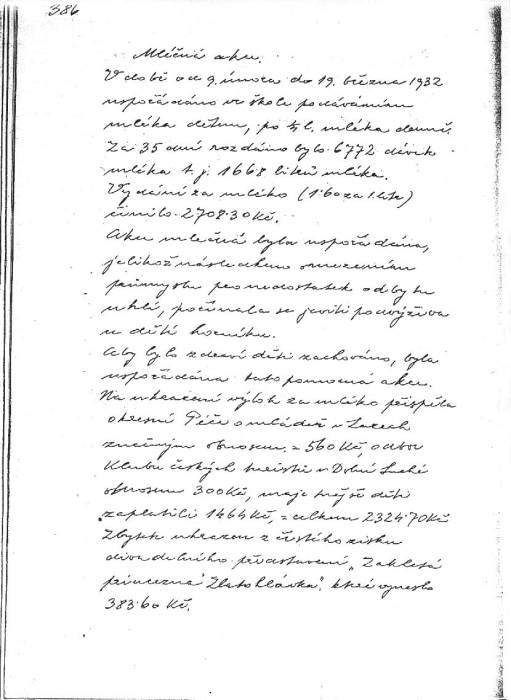 386
Mléčná akce.
V době od 9. února do 19. března 1932
uspořádáno ve škole podáváním
mléka dětem, po ¼ l. mléka denně.
Za 35 dní rozdáno bylo 6772 dávek
mléka t. j. 1668 litrů mléka.
Vydání za mléko (1·60 za 1 litr)
činilo 2708·30 Kč.
Akce mléčná byla uspořádána,
jelikož následkem omezením
průmyslu pro nedostatek odbytu
uhlí, počínala se jeviti podvýživa
u dětí horníků.
Aby bylo zdraví dětí zachováno, byla
uspořádána tato pomocná akce.
Na uhrazení výloh za mléko přispěla
okresní Péče o mládež v Lazech
značným obnosem = 560 Kč, odbor
Klubu českých turistů v Dolní Suché
obnosem 300 Kč, majetnější děti
zaplatili 1464 Kč, = celkem 2324·70 Kč
Zbytek uhrazen z čistého zisku
divadelního představení „Zakletá
princezna Zlatohlávka", které vyneslo
383·60 Kč.